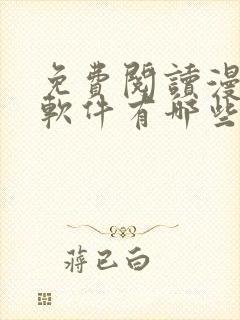 免費閱讀漫
軟件有哪些
蔣已白